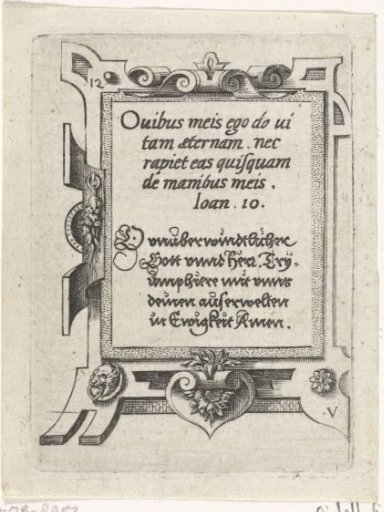 12
Ouibus meis ego do ui
tam æternam. nec
rapiet eas quisquam
de manibus meis.
Ioan. 10.
O vnüberwindtlicher
Gott vnnd Herr. Try=
umphiere mit vnns
deinen auserwelten
in Ewigkeit Amen.
V